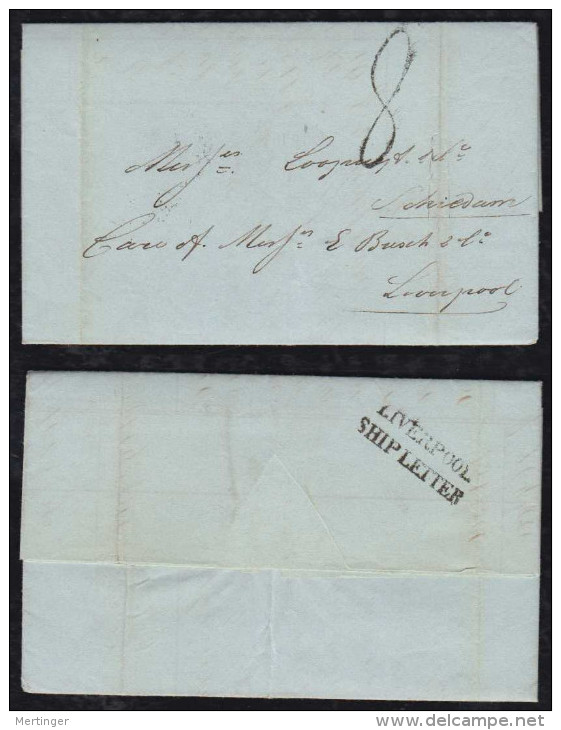 8
Messrs.
Schiedam
Care of Messrs E Busch & Co
Liverpool
LIVERPOOL
SHIP LETTER
Mertinger
http://www.delcampe.net